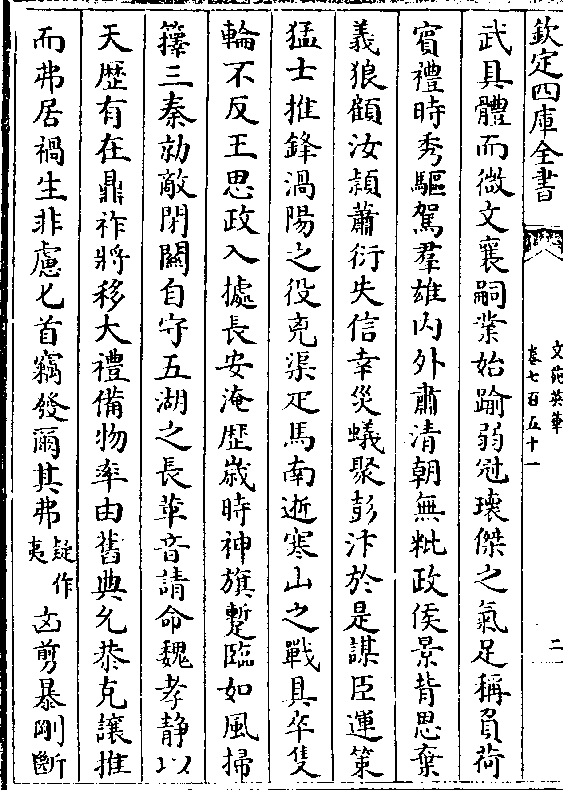 欽定四庫全書
文苑英華
卷七百五十一
二
武具體而微文襄嗣業始踰弱冠瓌傑之氣足稱負荷
賔禮時秀驅駕羣雄内外肅清朝無粃政侯景背恩棄
義狼顧汝潁蕭衍失信幸災蟻聚彭汴於是謀臣運策
猛士推鋒渦陽之役克渠疋馬南逝寒山之戰具卒隻
輪不反王思政入據長安淹歴歳時神旗蹔臨如風掃
籜三秦勍敵閉關自守五湖之長革音請命魏孝静以
天歴有在鼎祚將移大禮備物率由舊典允恭克讓推
而弗居禍生非慮匕首竊發爾其弗疑作夷凶剪暴剛斷